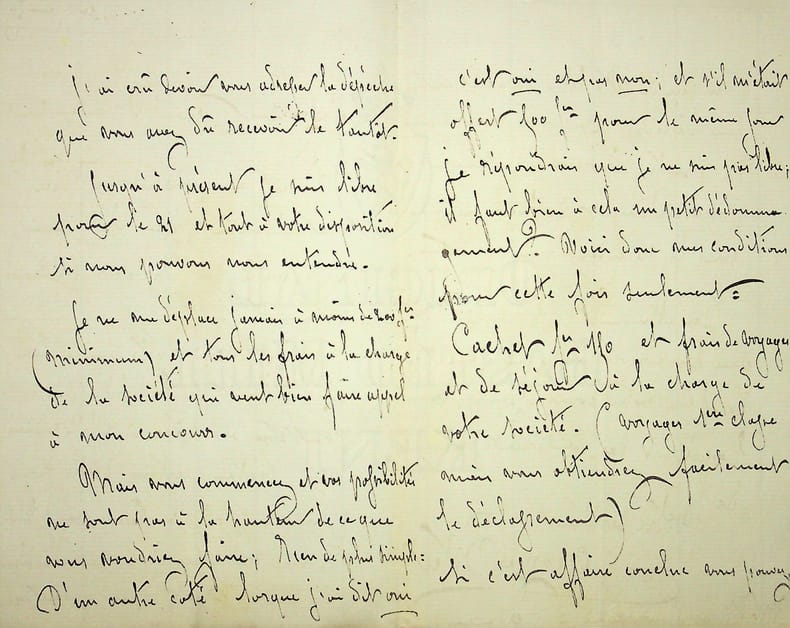 j'ai crû devoir vous adresser la dépêche
que vous avez dû recevoir le tantôt.
Jusqu'à présent je suis libre
pour le 21 et tout à votre disposition
si nous pouvons nous entendre.
Je ne me déplace jamais à moins de 200 frs
(minimum) et tous les frais à la charge
de la société qui veut bien faire appel
à mon concours.
Mais vous commencez et vos possibilités
ne sont pas à la hauteur de ce que
vous voudriez faire; Rien de plus simple:
D'un autre coté lorsque j'ai dit oui
c'est oui et pas non; et s'il m'était
offert 500 frs pour le même jour
je répondrais que je ne suis pas libre;
il faut bien à cela un petit dédomma
gement? Voici donc mes conditions
pour cette fois seulement =
Cachet frs 150 et frais de voyages
et de séjour à la charge de
votre société. (voyages 1ère classe
mais vous obtiendrez facilement
le déclassement)
si c'est affaire conclue vous pouvez